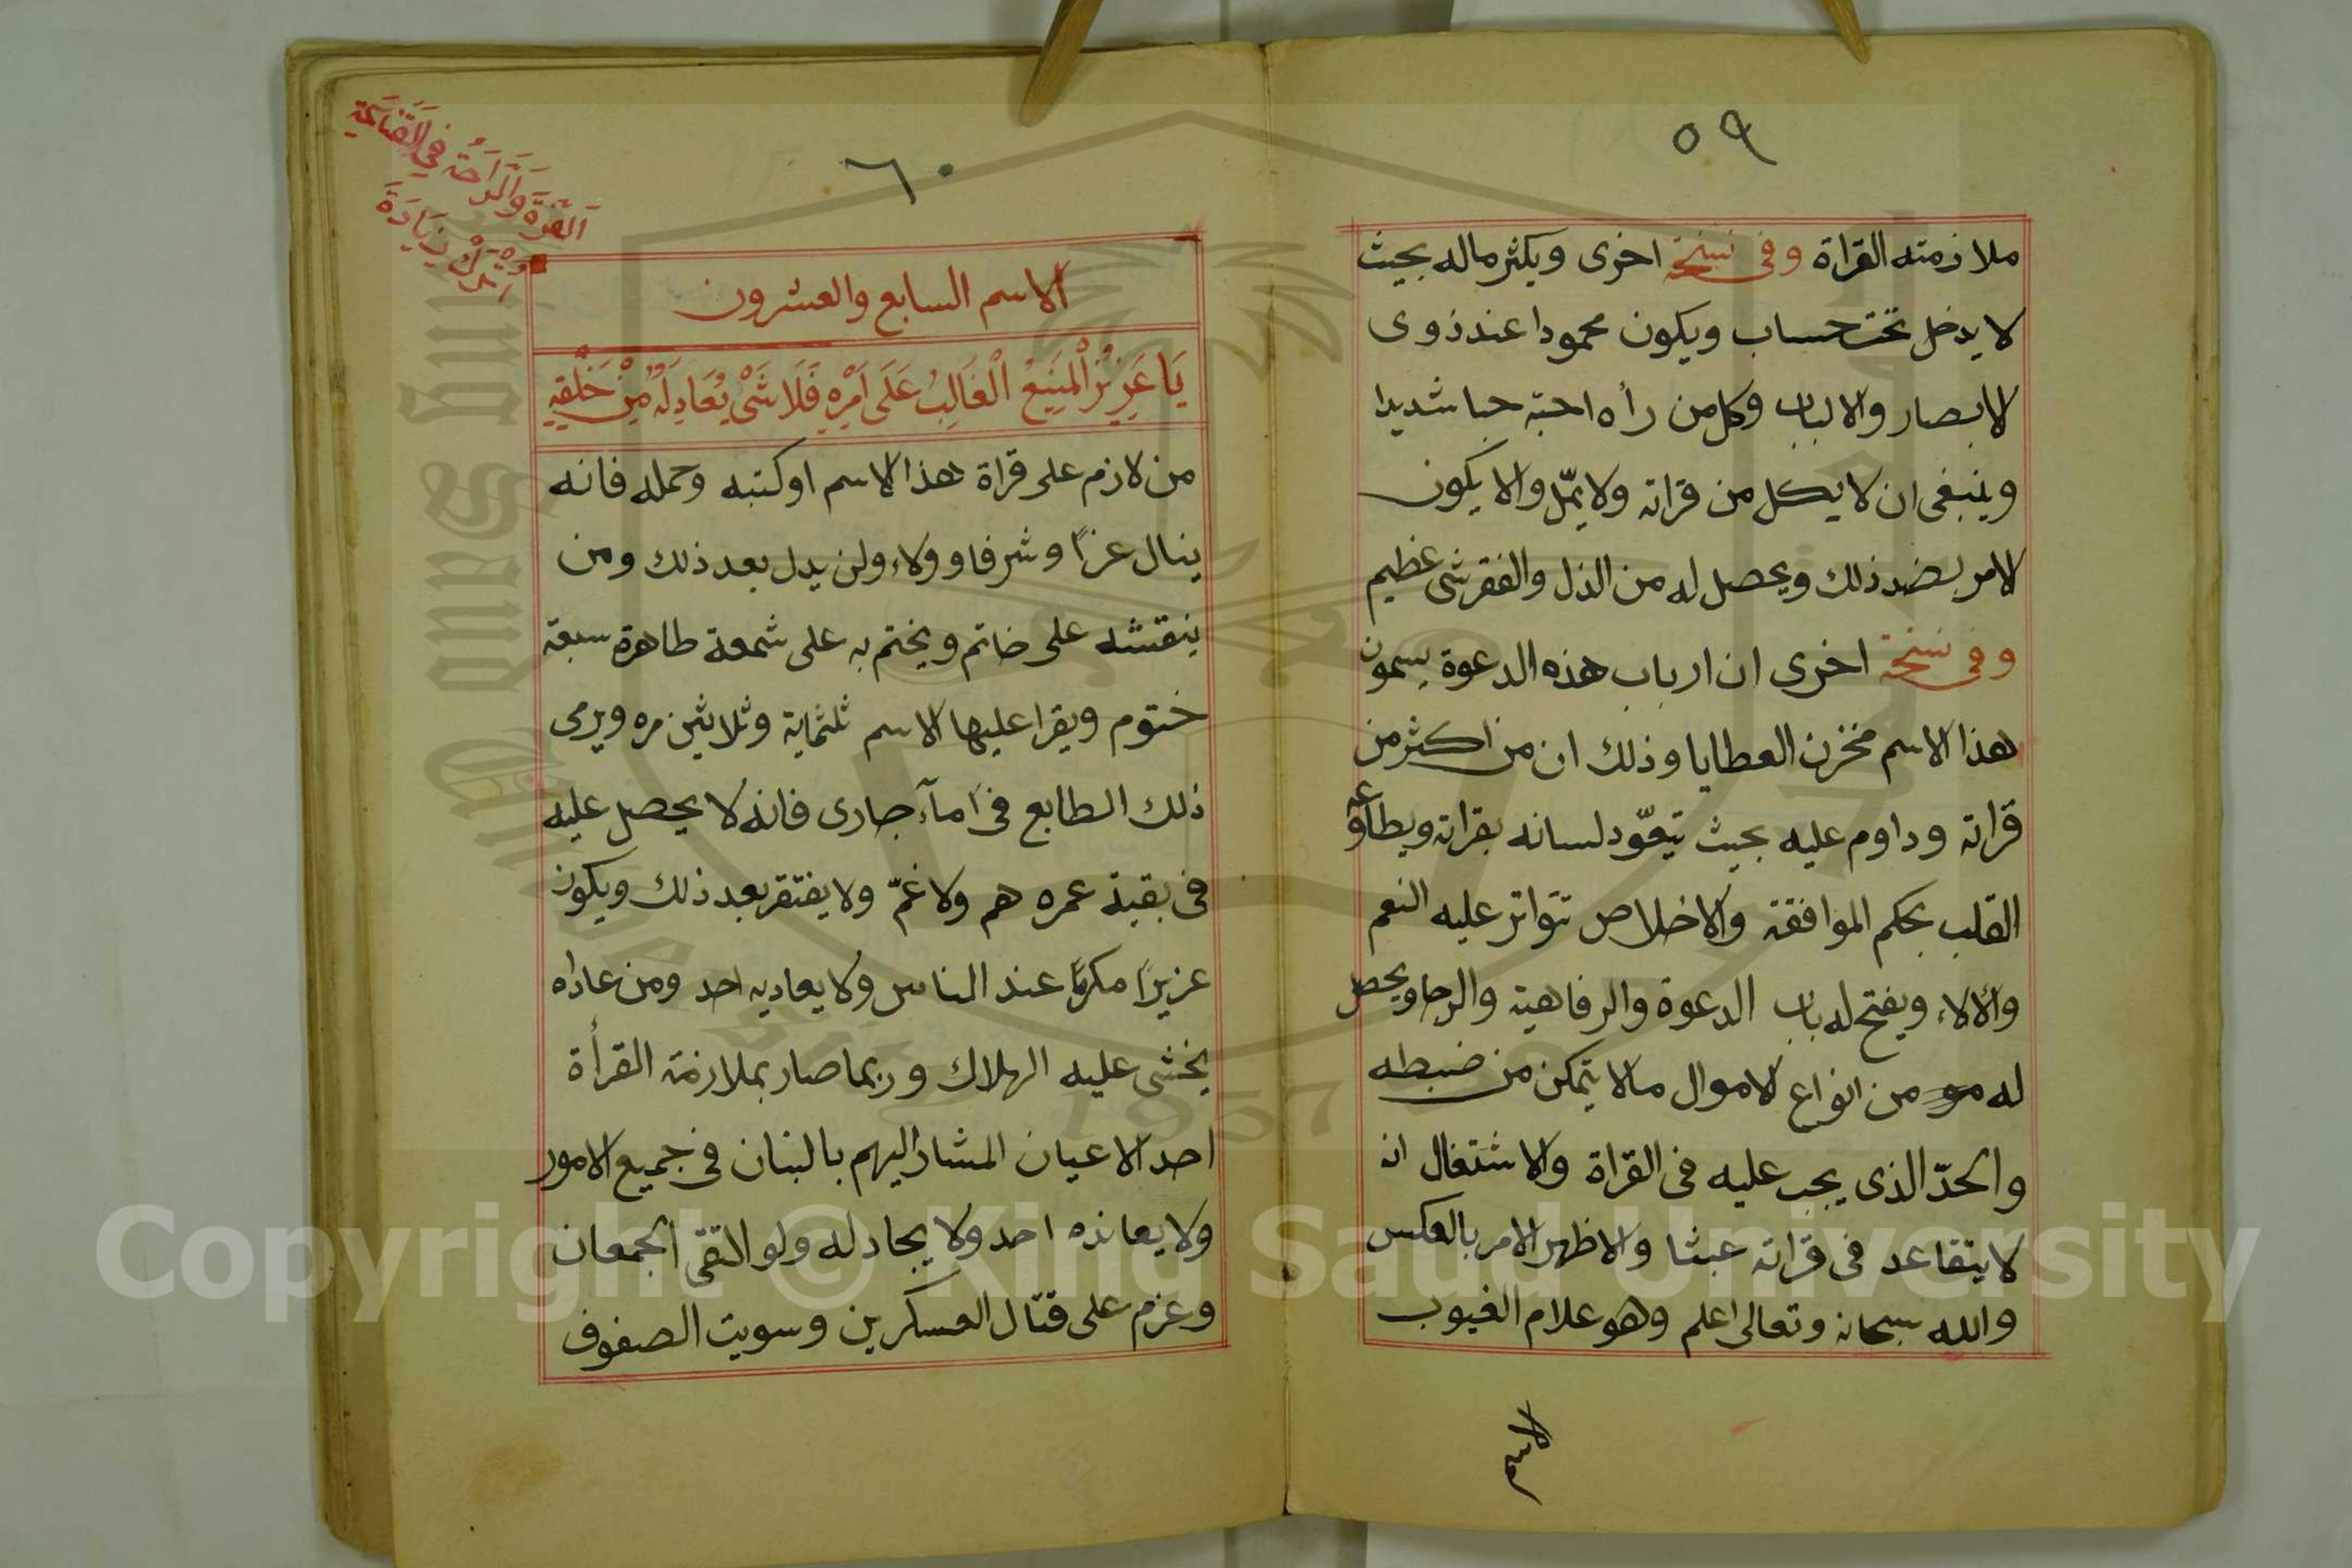 ٥٩
ملازمته القراة وفى نسخة اخرى ويكثر ماله بحيث
لا يدخل تحت حساب ويكون محمودا عند ذوى
الابصار والالباب وكل من رأه احبّه حبا شديدا
وينبغى ان لا يكل من قراته ولا يملّ والا يكون
الامر بضد ذلك ويحصل له من الذل والفقر شى عظيم
وفى نسخة اخرى ان ارباب هذه الدعوة يسمون
هذا الاسم مخزن العطايا وذلك ان من اكثر من
قراته وداوم عليه بحيث تيعوّد لسانه بقراته ويطاوعه
القلب بحكم الموافقة والاخلاص تتواتر عليه النعم
والالاء ويفتح له باب الدعوة والرفاهية والرجا ويحصل
له من انواع الاموال مالا يتمكن من ضبطه
والحدّ الذى يجب عليه فى القراة والاشتغال انه
لا يتقاعد فى قراته عبثا والا ظهر الامر بالعكس
والله سبحانه وتعالى اعلم وهو علام الغيوب
الاسم
٦٠
القوة والراحة في القناعة
زيادة
الاسم السابع والعشرون
يَا عَزِيْزُ الْمَنِيْعُ الْغَالِبُ عَلَى اَمْرِهِ فَلَا شَىْ يُعَادِلُهُ مِنْ خَلْقِهِ
من لازم على قراة هذا الاسم او كتبه وحمله فانه
ينال عزا وشرفا وولاء ولن يدل بعد ذلك ومن
ينقشه على خاتم ويختم به على شمعة طاهرة سبعة
ختوم ويقرا عليها الاسم ثلثماية وثلاثين مره ويرمى
ذلك الطابع فى مآء جارى فانه لا يحصل عليه
فى بقية عمره هم ولا غمّ ولا يفتقر بعد ذلك ويكون
عزيزا مكرما عند الناس ولا يعاديه احد ومن عاداه
يخشى عليه الهلاك وربما صار بملازمة القرأة
احد الاعيان المشار اليهم بالبنان فى جميع الامور
ولا يعانده احد ولا يجادله ولو التقى الجمعان
وعزم على قتال العسكرين وسويت الصفوف
Copyright © King Saud University
1957